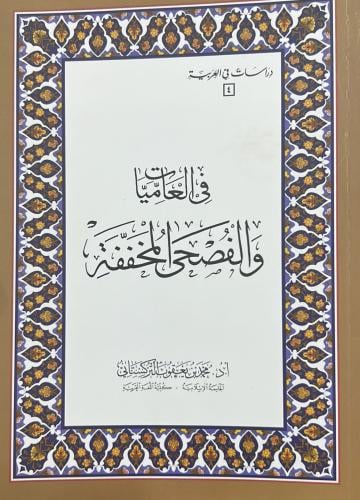 دراسات في العربية
٤
في العاميّات
والفُصْحى المُخَفَّفَة
أ.د. محمد بن يعقوب التركستاني
الجامعة الإسلامية - كلية اللغة العربية